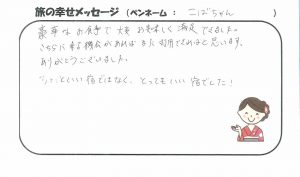 旅の幸せメッセージ（ペンネーム ： こばちゃん ）
豪華なお食事で 大変 お美味しく 満足できました。
こちらに来る機会があれば また 利用できればと思います。
ありがとうございました。
といい宿ではなく、とってもいい宿でした！